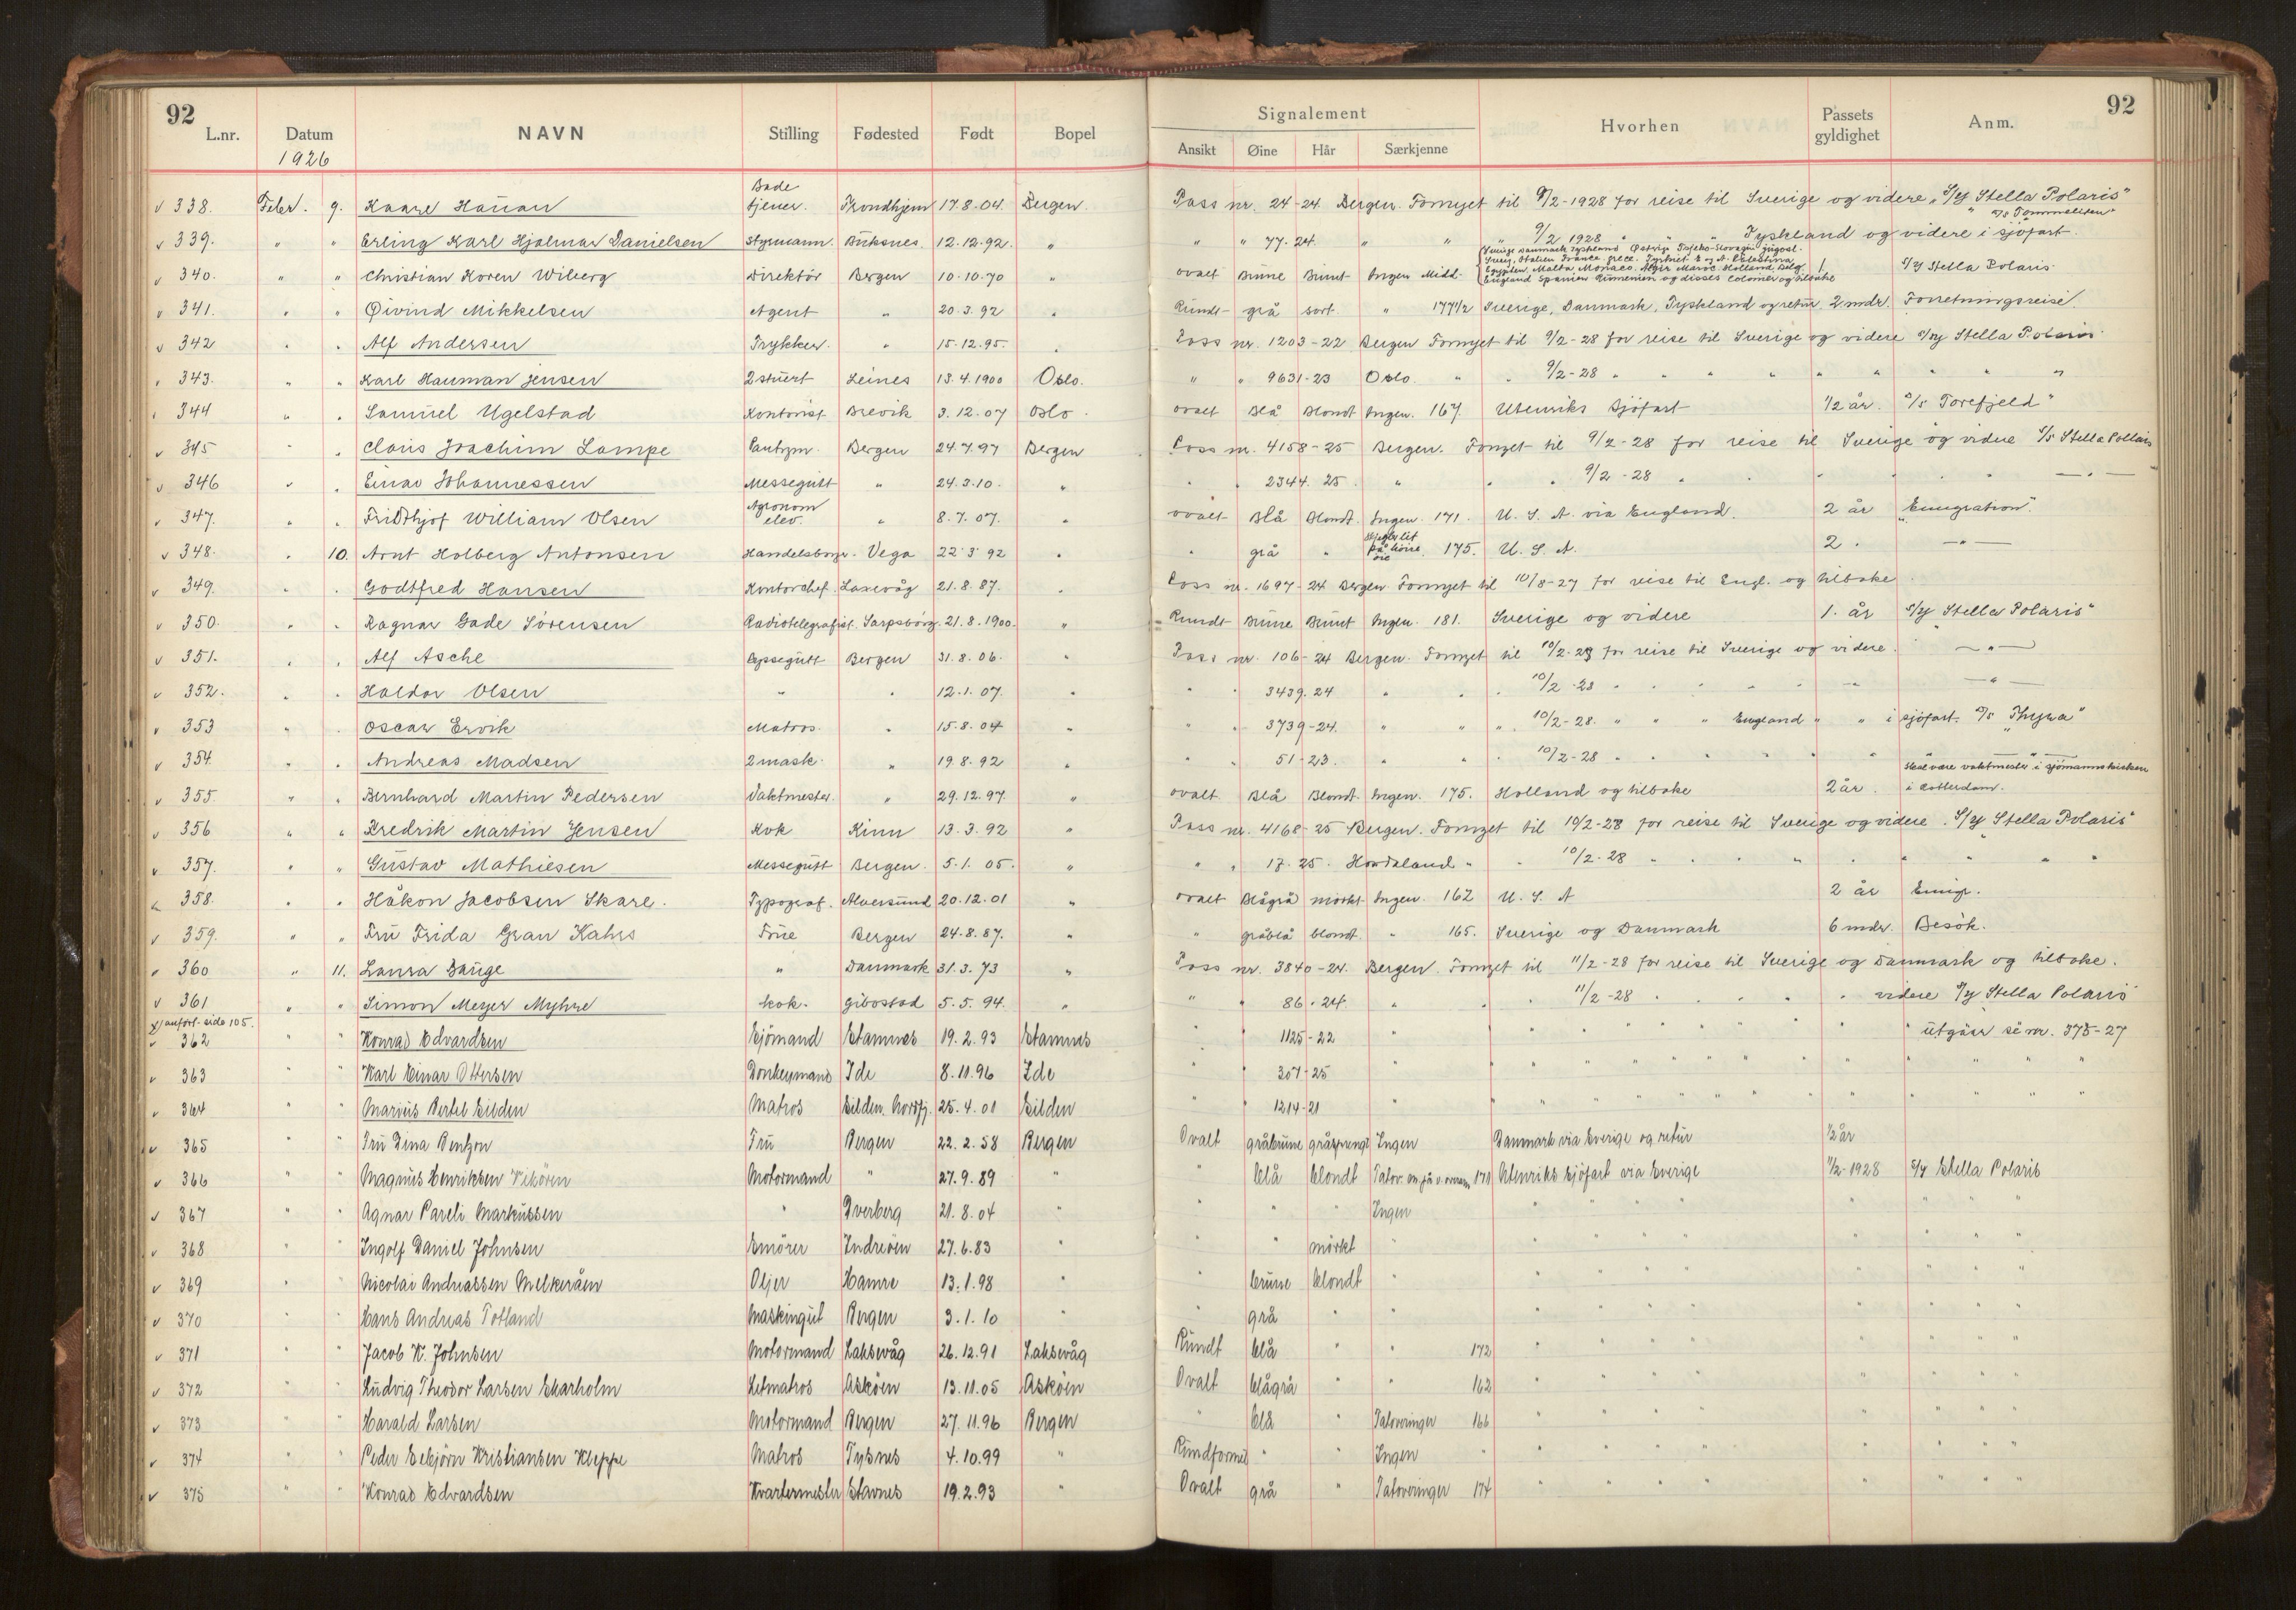 92
L.nr. Datum NAVN Stilling Fødested Født Bopel
1926
Signalement Hvorhen Passets gyldighet Anm. 92
Ansikt Øine Hår Særkjenne
338. Febr. 9. Kaare Hauan Bade tjener. Trondhjem 17.8.04. Bergen. Pass nr. 24-24 Bergen. Fornyet til 9/2-1928 for reise til Sverige og videre "S/Y Stella Polaris"
339. " " Erling Karl Hjalmar Danielsen Styrmann. Buksnes. 12.12.92. " " " 77-24. " " 9/2 1928 " Tyskland og videre i sjøfart. D/S Tommeliten"
340. " " Christian Koren Wiberg Direktör Bergen 10.10.70 " ovalt Brune Brunt Ingen Midd. Sverige Danmark Tyskland Østrig Tsjeko-Slovagin jugosl. Italien France Palestina Egypten, Malta Monaco. Alger Maroc Holland, Belg. England Spanien Rumenien og disses Colonier og tilbake 1 S/Y Stella Polaris
341. " " Øivind Mikkelsen Agent " 20.3.92 " Rundt grå sort. " 177 1/2 Sverige, Danmark, Tyskland og retur. 2 mdr. Forretningsreise.
342 " " Alf Andersen Trykker. " 15.12.95. " Pass nr. 1203-22 Bergen Fornyet til 9/2-28 for reise til Sverige og videre S/Y Stella Polaris.
343. " " Karl Hauman Jensen 2 stuert Leines 13.4.1900 Oslo. " " 9631-23 Oslo. " " 9/2-28 " " " " " " " "
344 " " Samuel Ugelstad Kontorist Brevik 3.12.07 Oslo. ovalt Blå Blondt Ingen. 167. Utenriks Sjöfart 1/2 år. D/S Torefjeld"
345 " " Claus Joachim Lampe Pantrym. Bergen 24.7.97 Bergen Pass nr. 4158-25 Bergen. Fornyet til 9/2-28 for reise til Sverige og videre S/S Stella Pollaris
346 " " Einar Johannessen Messegutt " 24.3.10. " " " 2344. 25. " " " 9/2-28 " " " " —"—
347. " " Fridthjof William Olsen Agronom elev. " 8.7.07. " ovalt Blå Blondt. Ingen. 171. U.S.A. via England. 2 år "Emigration".
348. " 10. Arnt Holberg Antonsen Handelsborger. Vega 22.3.92 " " grå " på høire øie 175. U.S.A. 2 " —"—
349. " " Godtfred Hansen Kontorchef. Laxevåg 21.8.87. " Pass nr. 1697-24 Bergen Fornyet til 10/8-27 for reise til Engl. og tilbake.
350. " " Ragnar Gade Sörensen Radiotelegrafist. Sarpsborg. 21.8.1900. " Rundt Brune Brunt Ingen. 181. Sverige og videre 1. år S/Y Stella Polaris"
351. " " Alf Asche Bergen 31.8.06. " Pass nr. 106-24 Bergen. Fornyet til 10/2-28 for reise til Sverige og videre. —"—
352. " " Haldor Olsen " " 12.1.07. " " " 3439.24 " " " 10/2-28 " " " " " —"—
353 " " Oscar Ervik Matros. " 15.8.04 " " " 3739-24. " " " 10/2-28. " " " England " " i sjöfart. D/S "Thyra"
354. " " Andreas Madsen 2 mask. " 19.8.92 " " " 51-23. " " " 10/2-28 " " " " " " —"—
355. " " Bernhard Martin Pedersen Vaktmester. " 29.12.97. " ovalt Blå Blondt. Ingen. 175. Holland og tilbake 2 år. Skal være vaktmester i sjömannskirken i Rotterdam.
356 " " Fredrik Martin Jensen Kok Kinn 13.3.92 " Pass nr. 4168-25 Bergen. Fornyet til 10/2-28 for reise til Sverige og videre. S/Y Stella Polaris"
357. " " Gustav Mathiesen Messegutt Bergen. 5.1.05. " " " 17-25. Hordaland " " 10/2-28 " " " " " " "
358. " " Håkon Jacobsen Skare. Typograf. Alversund 20.12.01 " ovalt Blågrå mörkt Ingen. 162 U.S.A 2 år Emigr.
359. " " Fru Frida Gran Kahrs Frue Bergen 24.8.87. " " gråblå blondt. " 165. Sverige og Danmark 6 mdr. Besök.
360 " 11. Laura Bauge " Danmark 31.3.73 " Pass nr. 3840-24. Bergen. Fornyet til 11/2-28 for reise til Sverige og Danmark og tilbake.
361 " " Simon Meyer Myhre kok. Gibostad 5.5.94. " " " 86-24. " " " 11/2-28 " " " " " videre S/Y Stella Polaris
x) anfört side 105.
362 " " Konrad Edvardsen Sjömand Stamnes 19.2.93 Stamnes " " 1125-22 " " " " " " " " " utgåar se nr. 375-27
363 " " Karl Einar Ottersen Donkeymand Ide 8.11.96 Ide " " 307-25 " " " " " " " " " " "
364 " " Marius Bertel Eilden Matros Eilden. Nordfj. 25.4.01 Eilden " " 1214-21 " " " " " " " " " " "
365 " " Fru Dina Bentzon Fru Bergen 22.2.58 Bergen Ovalt gråbrune gråsprengt Ingen Danmark via Sverige og retur 1/2 år
366 " " Magnus Henriksen Vikören Motormand " 27.9.89 " " blå blondt Tator. 171 Utenriks sjöfart via Sverige 11/2-1928 S/Y Stella Polaris
367 " " Agnar Pareli Markussen " Dverberg 21.8.04 " " " " Ingen " " " " " " " "
368 " " Ingolf Daniel Johnsen Smörer Inderöen 27.6.83 " " " mörkt " " " " " " " " "
369 " " Nicolai Andreassen Melkeråen Oljer Hamre 13.1.98 " " brune blondt " " " " " " " " "
370 " " Hans Andreas Totland Maskingut Bergen 3.1.10 " " grå " " " " " " " " " "
371 " " Jacob K. Johnsen Motormand Laksevåg 26.12.91 Laksevåg Rundt blå " " 172 " " " " " " " "
372 " " Ludvig Theodor Larsen Skarholm Letmatros Asköen 13.11.05 Asköen Ovalt blågrå " " 162 " " " " " " " "
373 " " Harald Larsen Motormand Bergen 27.11.96 Bergen " blå " Tatoveringer 166 " " " " " " " "
374 " " Peder Eebjörn Kristiansen Kleppe Matros Tysnes 4.10.99 " Rundformet " " Ingen " " " " " " " " "
375 " " Konrad Edvardsen Kvartermester Stavnes 19.2.93 " Ovalt grå " Tatoveringer 174 " " " " " " " "